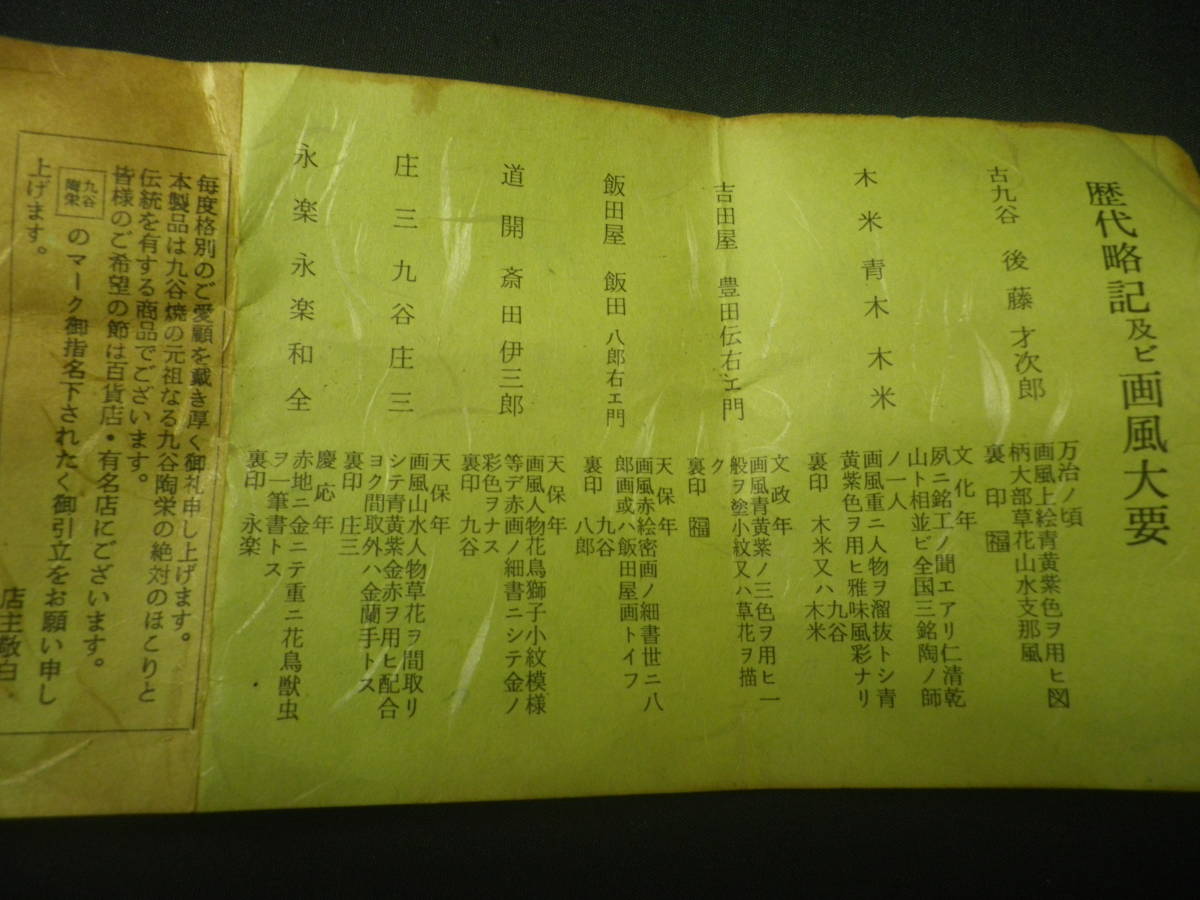 歴代略記及ビ画風大要
古九谷 後藤才次郎
万治ノ頃
画風上絵青黄紫色ヲ用ヒ図
柄大部草花山水支那風
裏印 福
木米 青木木米
文化年
夙ニ銘工ノ聞エアリ仁清乾
山ト相並ビ全国三銘陶ノ師
ノ一人
画風重ニ人物ヲ溜抜トシ青
黄紫色ヲ用ヒ雅味風彩ナリ
九谷
裏印 木米又ハ木米
吉田屋 豊田伝右エ門
文政年
画風青黄紫ノ三色ヲ用ヒ一
般ヲ塗小紋又ハ草花ヲ描
ク
裏印 福
飯田屋 飯田八郎右エ門
天保年
画風赤絵密画ノ細書世ニ八
郎画或ハ飯田屋画トイフ
裏印 九谷
八郎
道開 斎田伊三郎
天保年
画風人物花鳥獅子小紋模様
等デ赤画ノ細書ニシテ金ノ
彩色ヲナス
裏印 九谷
庄三 九谷庄三
天保年
画風山水人物草花ヲ間取リ
シテ青黄紫金赤ヲ用ヒ配合
ヨク間取外ハ金蘭手トス
裏印 庄三
永楽 永楽和全
慶応年
赤地ニ金ニテ重ニ花鳥獣虫
ヲ一筆書トス
裏印 永楽
毎度格別のご愛顧を戴き厚く御礼申し上げます。
本製品は九谷焼の元祖なる九谷陶栄の絶対のほこりと
伝統を有する商品でございます。
皆様のご希望の節は百貨店・有名店にございます。
九谷陶栄のマーク御指名下されたく御引立をお願い申し
上げます。
店主敬白